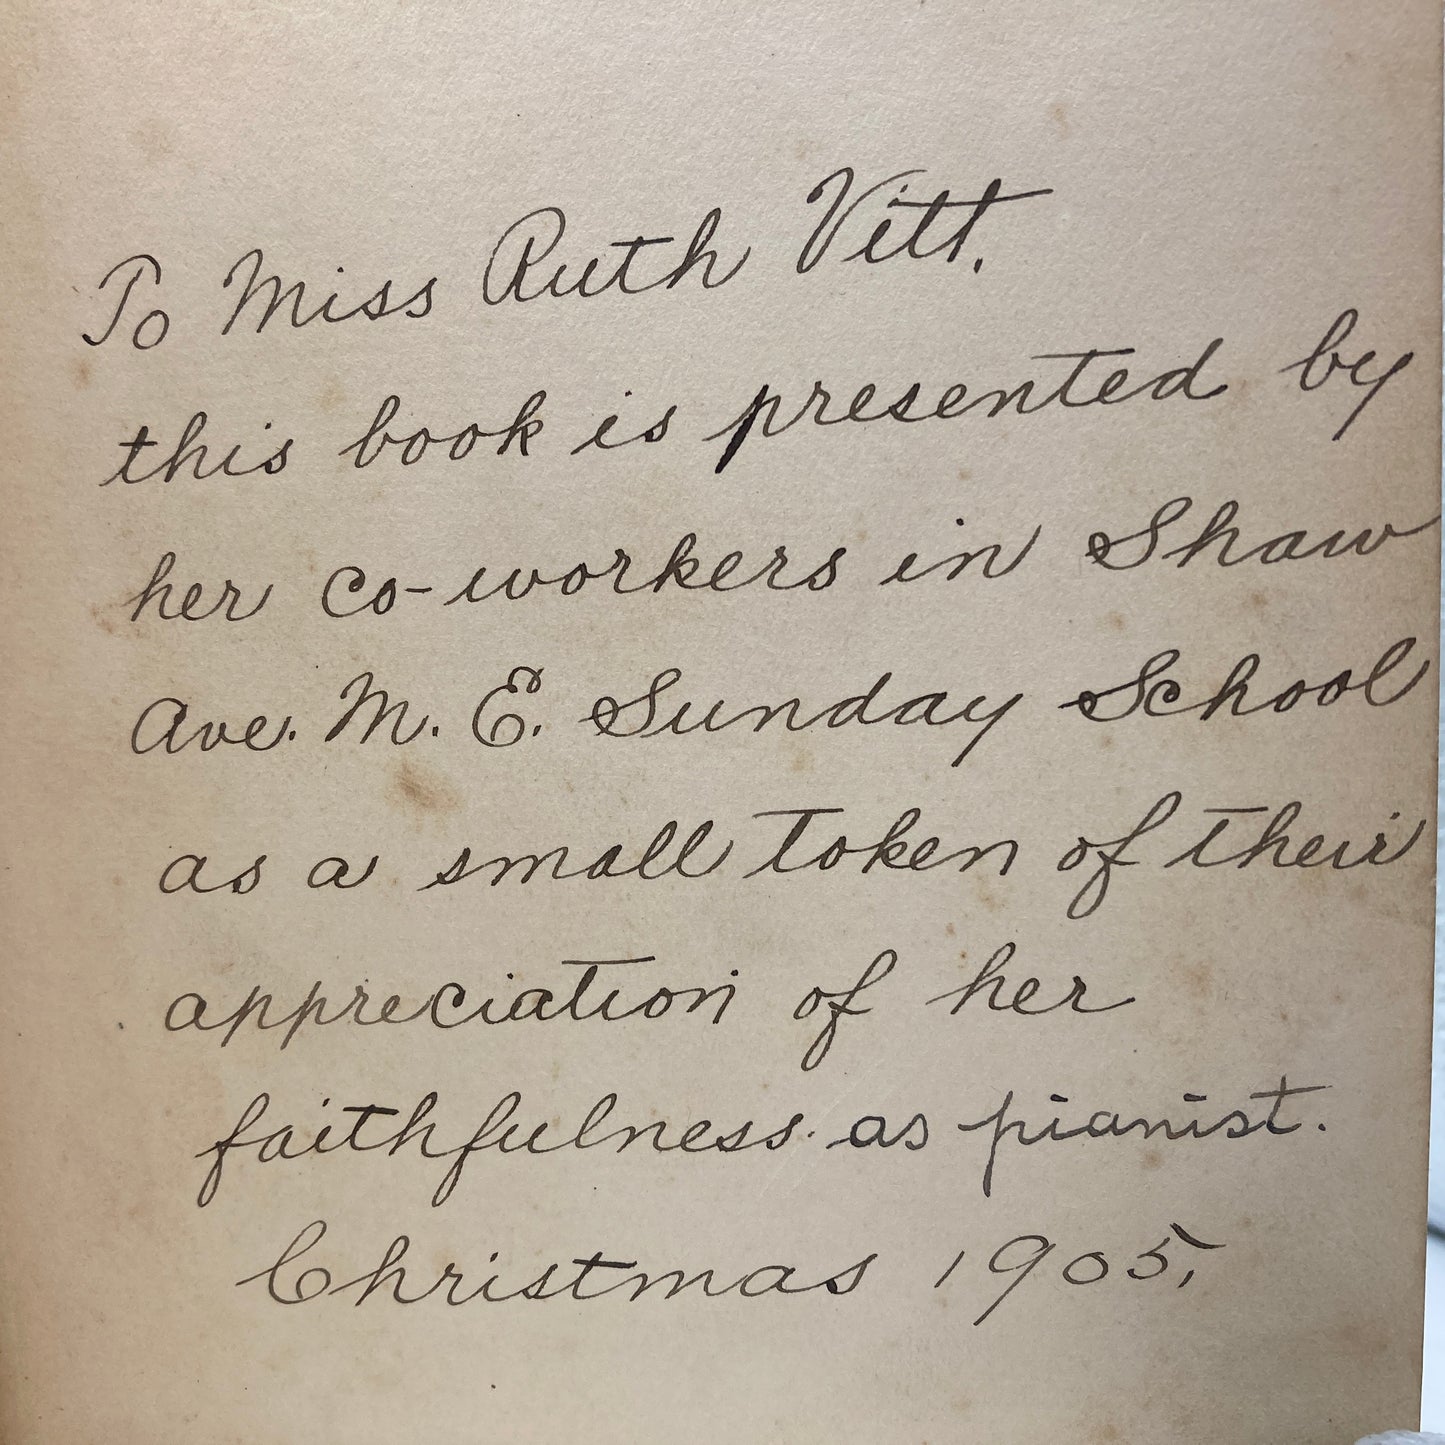 To Miss Ruth Vitt.
this book is presented by
her co-workers in Shaw
Ave. M. E. Sunday School
as a small token of their
appreciation of her
faithfulness as pianist.
Christmas 1905.